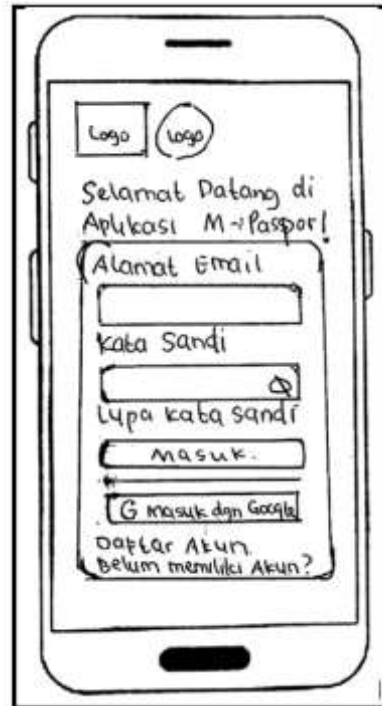 Logo Logo
Selamat Datang di
Aplikasi M-Paspor!
Alamat Email
Kata Sandi
Lupa kata sandi
Masuk.
G Masuk dgn Google
Daftar Akun.
Belum memiliki Akun?